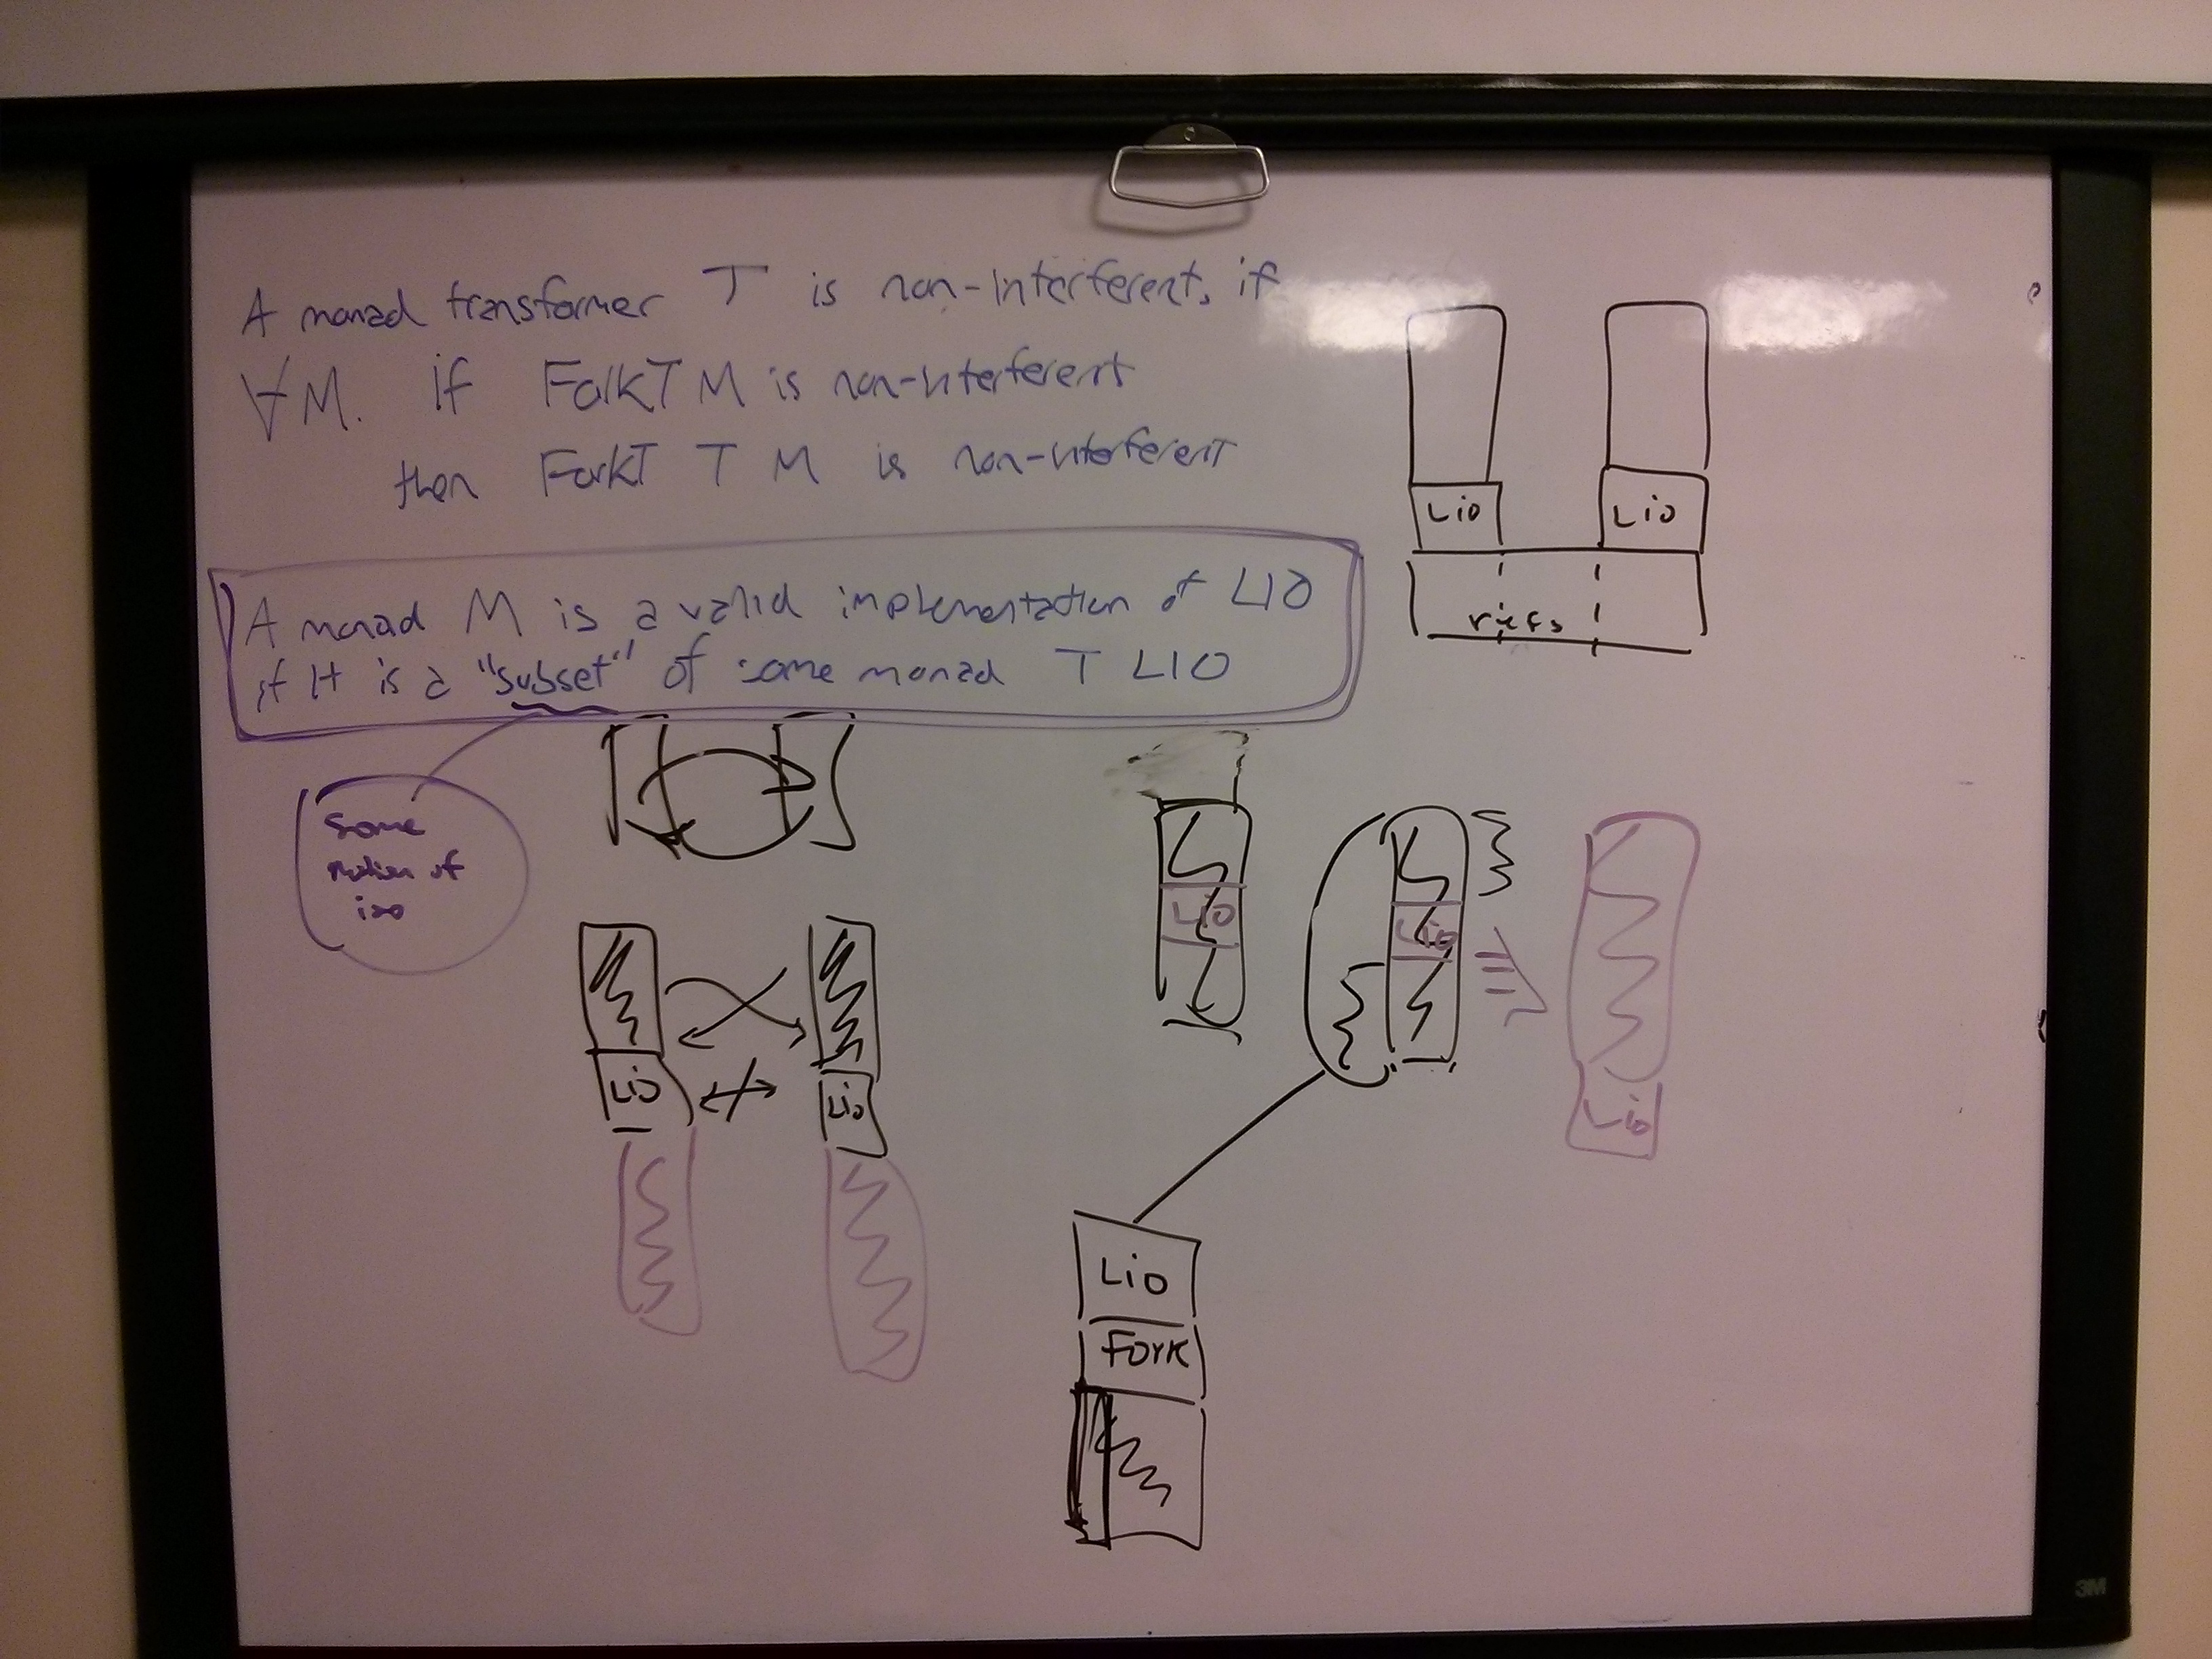 A monad transformer T is non-interferent, if
∀M. if ForkT M is non-interferent
then ForkT T M is non-interferent
A monad M is a valid implementation of LIO
if it is a "subset" of some monad T LIO
some
notion of
iso
Lio Lio
refs
Lio
Lio
Lio
Lio
Lio
Lio
Fork
3M